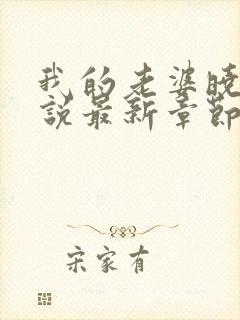 我的老婆晓
说最新章节
宋家有